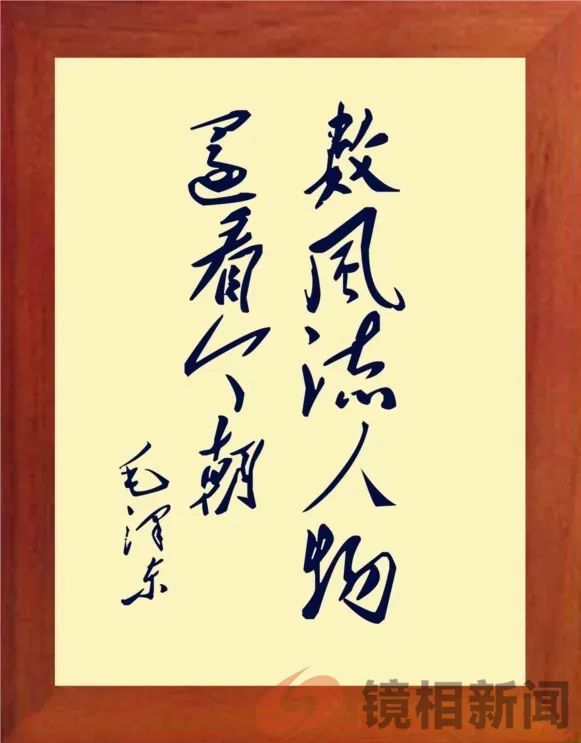 数风流人物
還看今朝
毛泽东
镜相新闻